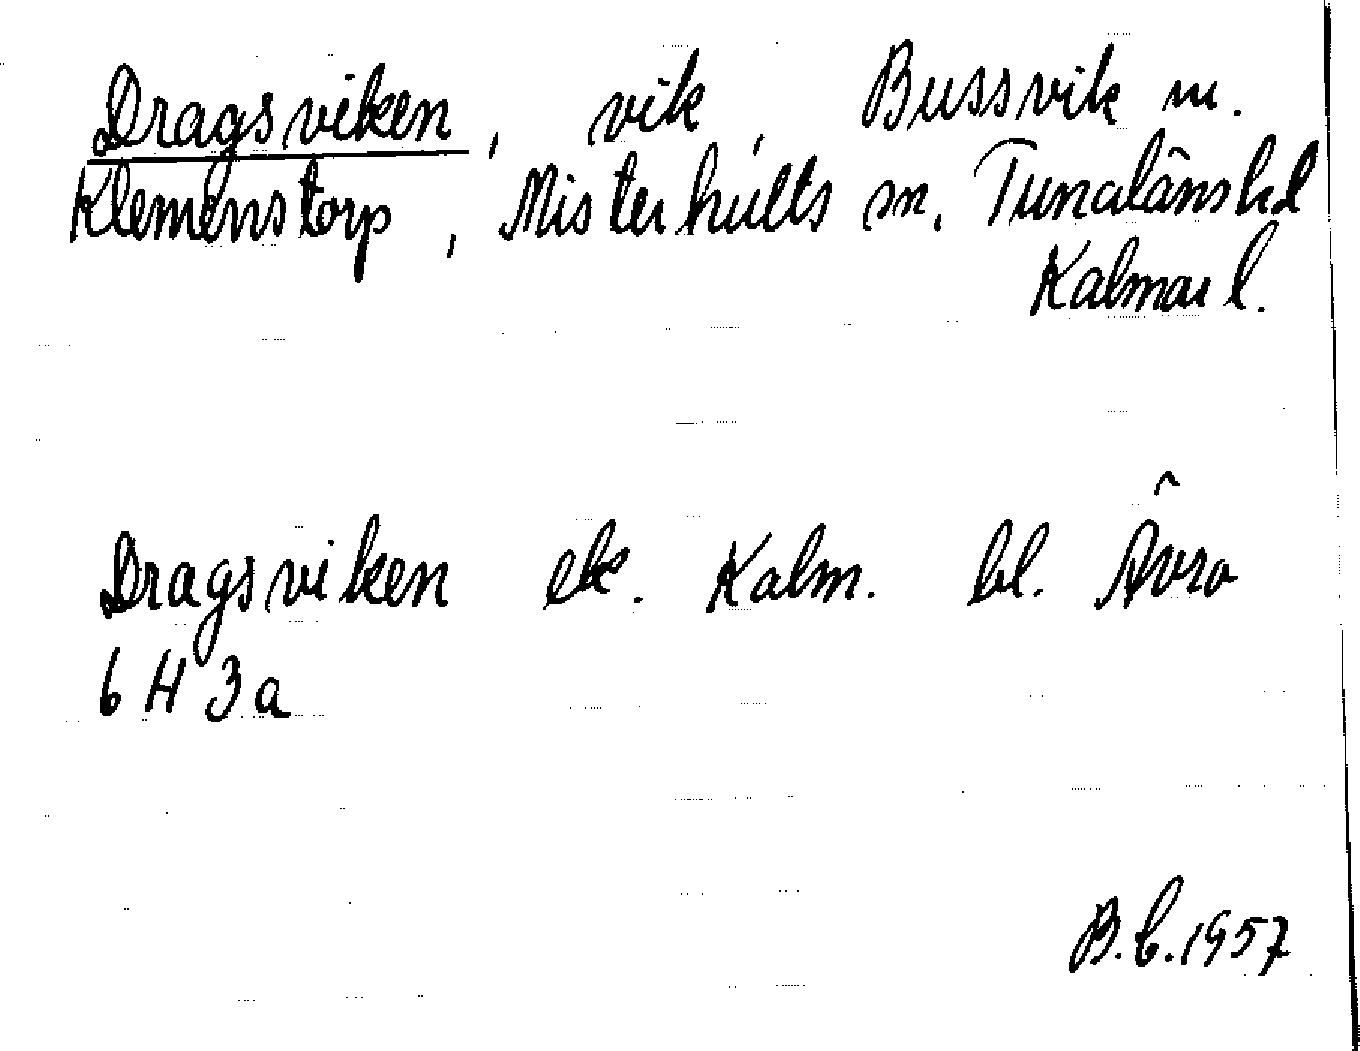 Dragsviken, vik, Bussvik m.
Klemenstorp, Misterhults sn. Tunaläns hd
Kalmar l.
Dragsviken ek. Kalm. bl. Ävrö
6 H 3 a
B.b.1957